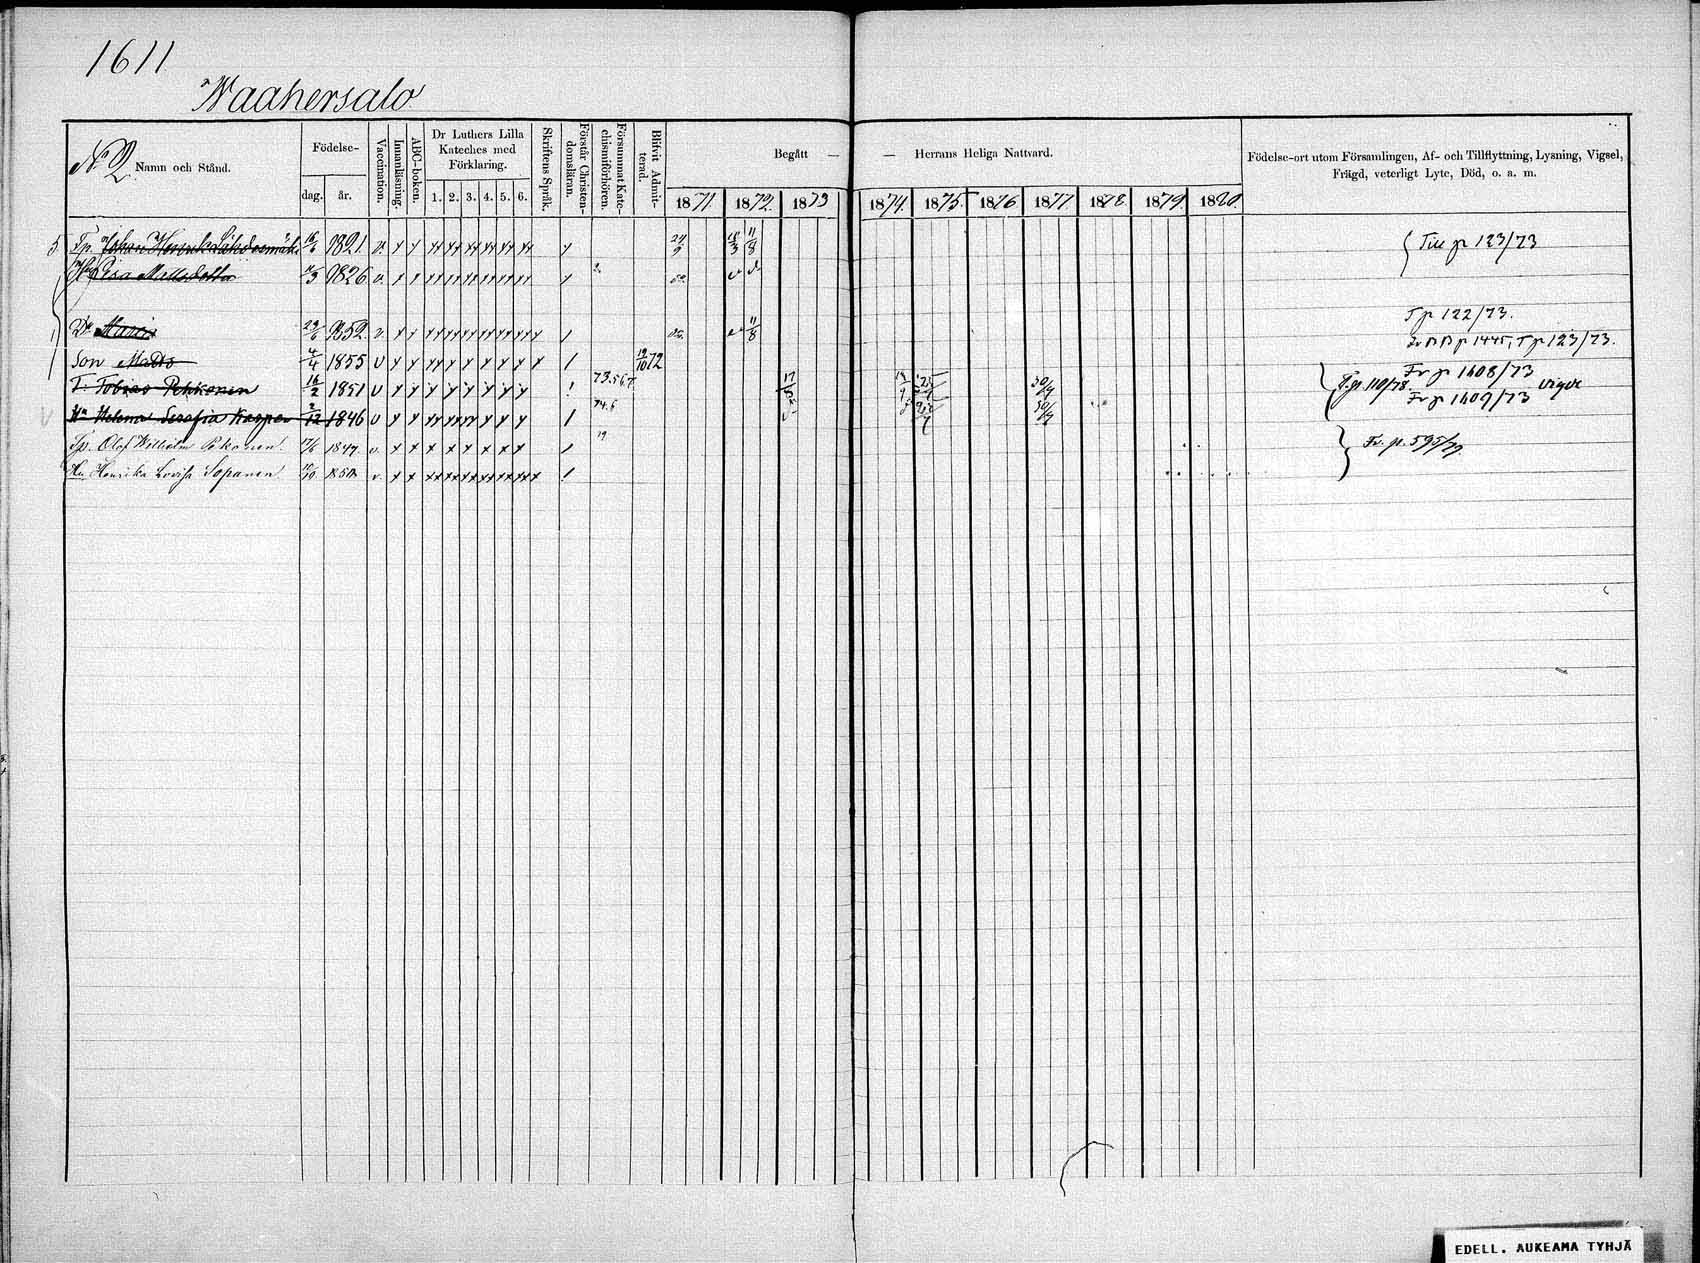 1611
Waahersalo
No 2 Namn och Stånd.
Födelse-
dag. år.
Vaccination.
Innanläsning.
ABC-boken.
Dr Luthers Lilla
Kateches med
Förklaring.
1. 2. 3. 4. 5. 6.
Skriftens Språk.
Förstår Christen-
domsläran.
Försummat Kate-
chismiförhören.
Blifvit Admit-
terad.
Begått —
— Herrans Heliga Nattvard.
1871. 1872. 1873 1874. 1875. 1876 1877 1878. 1879 1880.
Födelse-ort utom Församlingen, Af- och Tillflyttning, Lysning, Vigsel,
Frägd, veterligt Lyte, Död, o. a. m.
5 Tp. Johan Henrik 16/6 1821. v. 24/9 18/3 11/8 Till p 123/73
Hu Lisa Mattsdotter 1826 v.
1 Dr Maria 1852. v. 11/8 T p 122/73.
Son Matts 4/4 1855 v 19/10 72 p 1445, T p 123/73.
T. Tobias Pekkonen 16/2 1851 v 73.5.6.7. 17/5 30/9 T. p. 110/78. Fr p 1608/73
Hu Helena Serafia Kasper 2/12 1846 v 74.6 30/9 Fr p 1609/73 vigde
Sp. Olof Wilhelm Pekonen. 17/6 1847. v. 79 Fr. p. 595/79
Hu Henrika Lovisa Sopanen 1850. v.
EDELL. AUKEAMA TYHJÄ